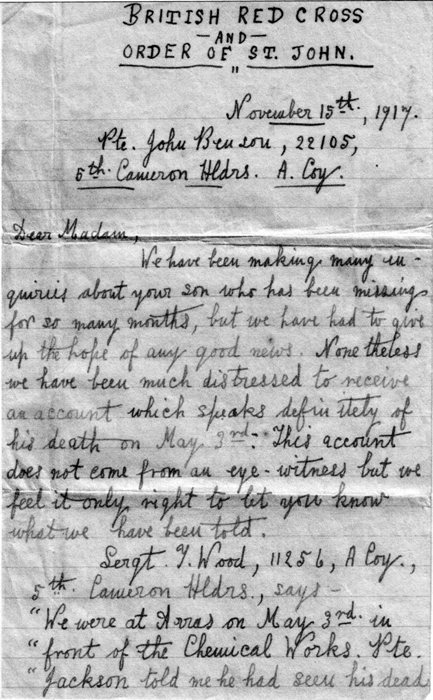 BRITISH RED CROSS
— AND —
ORDER OF ST. JOHN.
"
November 15th, 1917.
Pte. John Benson, 22105,
5th. Cameron Hldrs. A. Coy.
Dear Madam,
We have been making many in-
quiries about your son who has been missing
for so many months, but we have had to give
up the hope of any good news. None theless
we have been much distressed to receive
an account which speaks definitely of
his death on May 3rd. This account
does not come from an eye-witness but we
feel it only right to let you know
what we have been told.
Sergt. Y. Wood, 11256, A Coy.,
5th. Cameron Hldrs., says -
"We were at Arras on May 3rd. in
"front of the Chemical Works. Pte.
"Jackson told me he had seen his dead